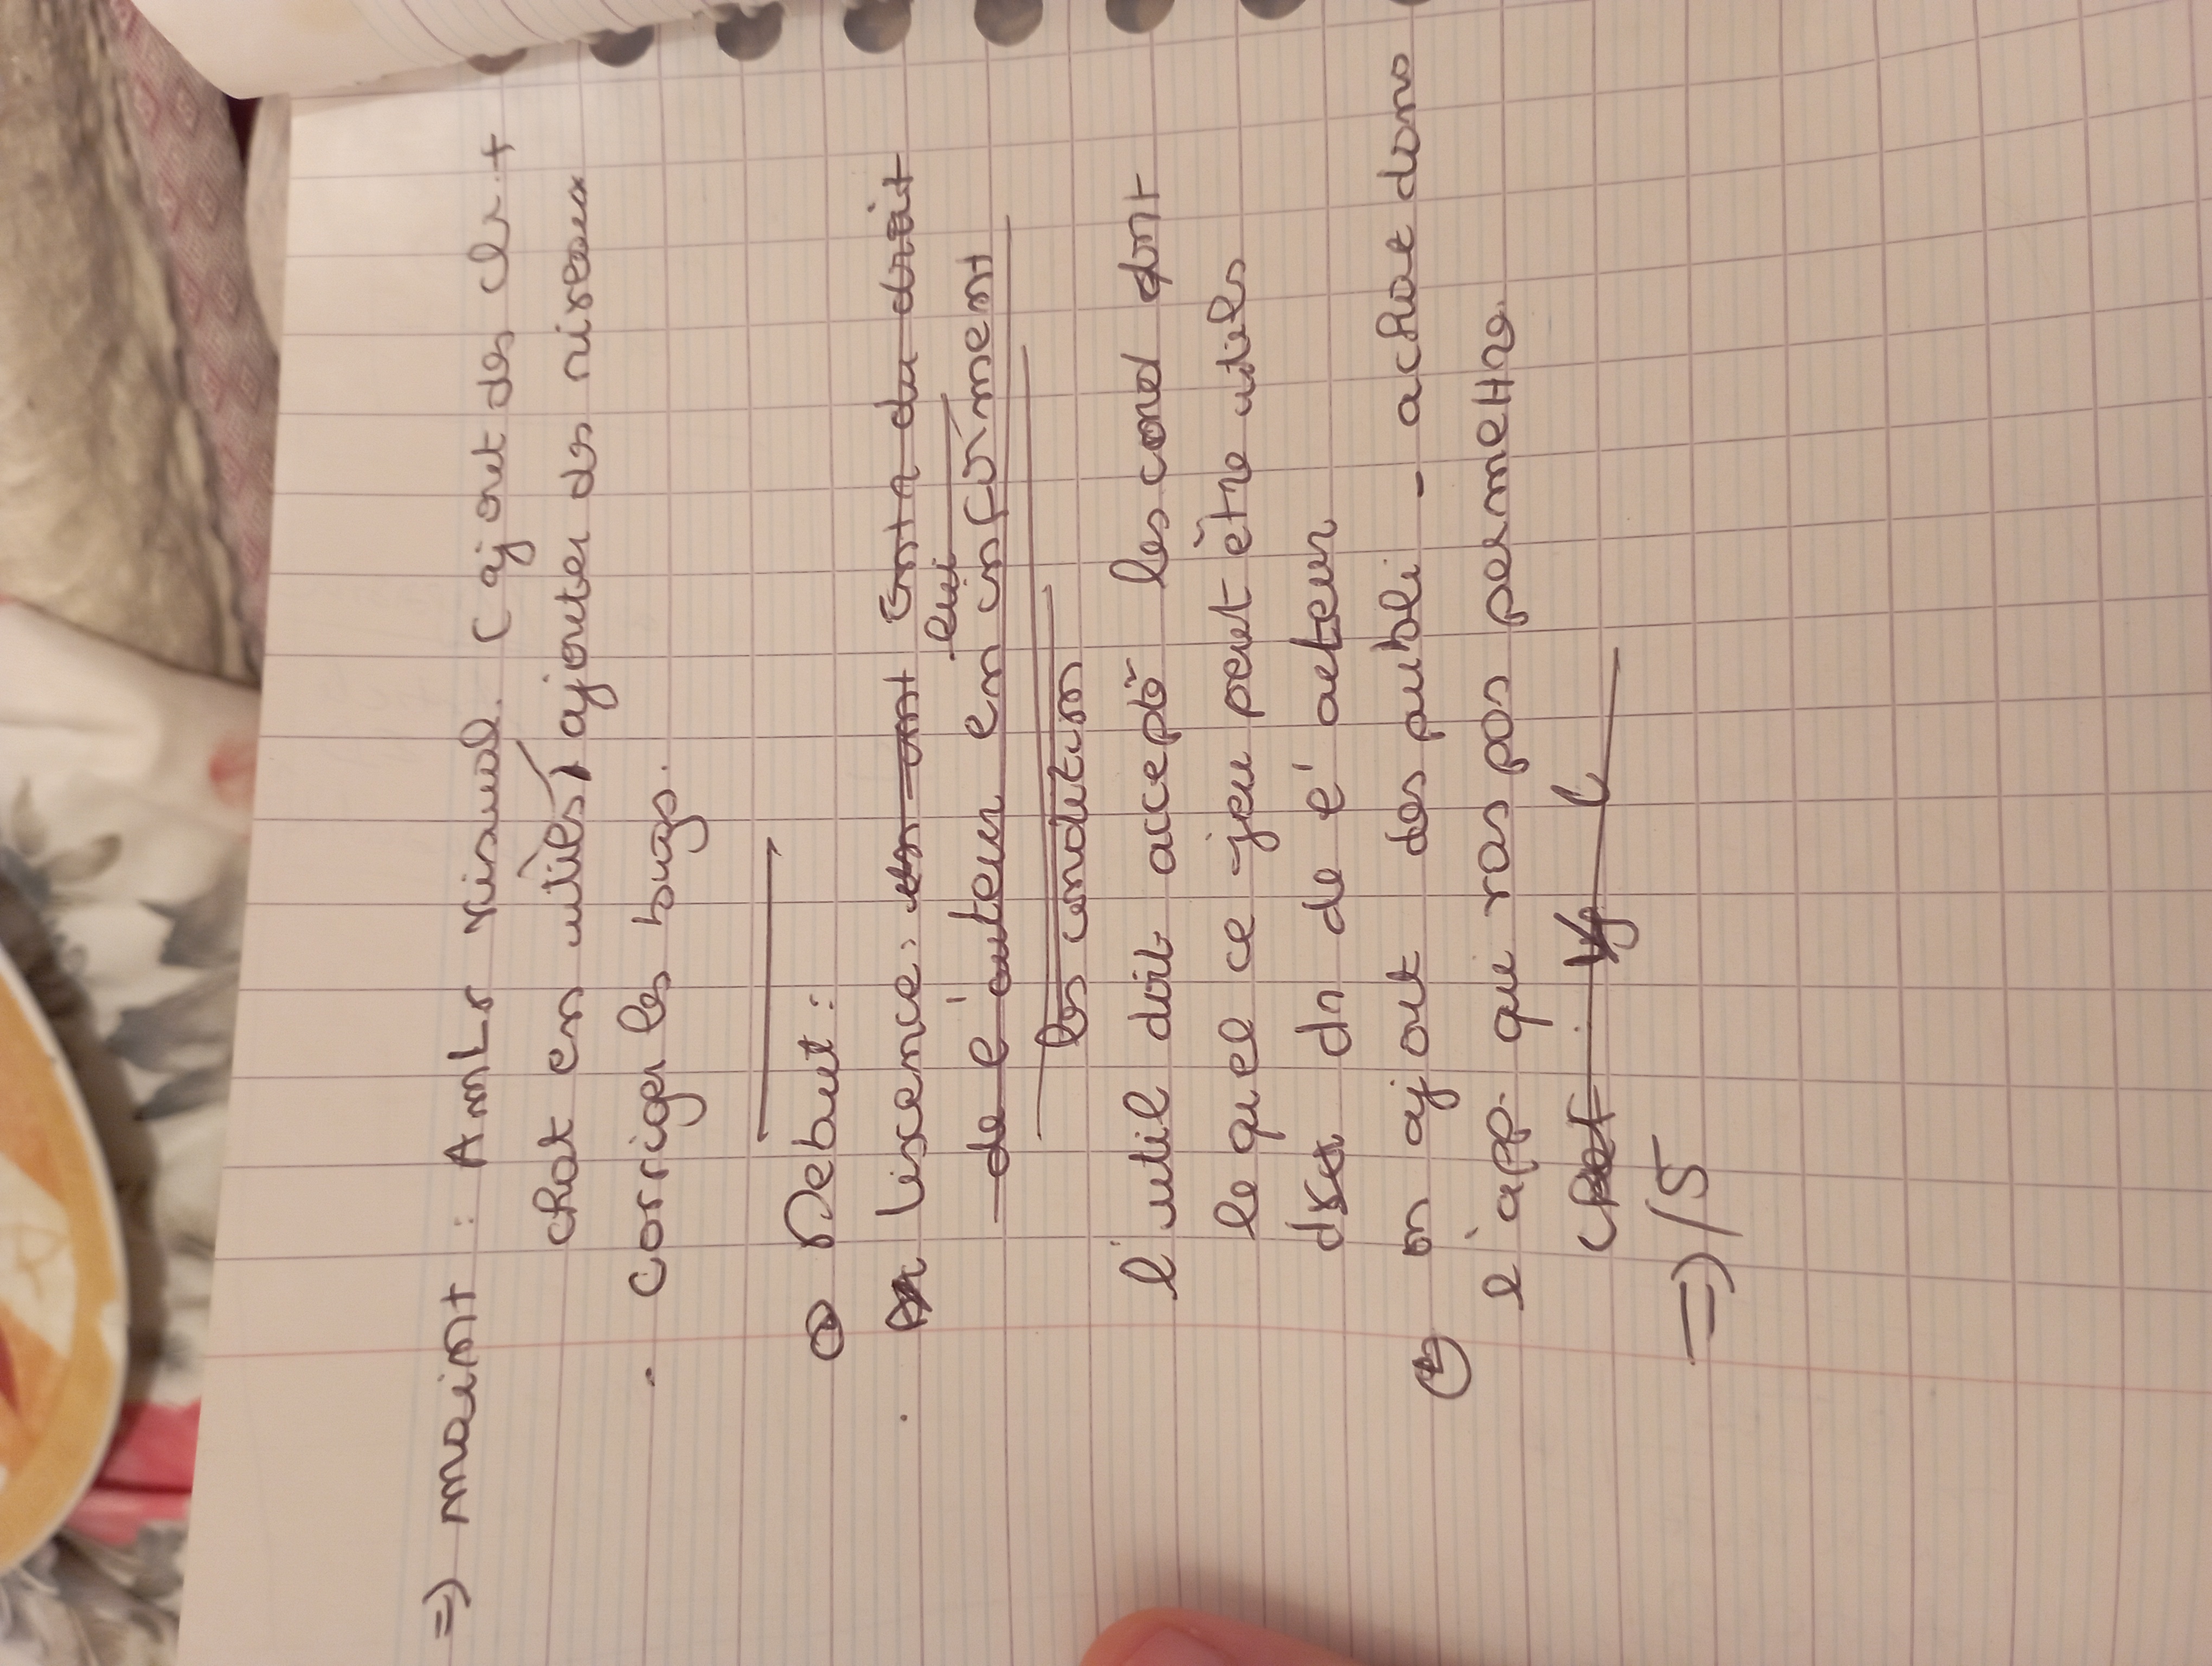 =) maint : Amlr visuel. ( ajout des el +
chat en utiles) ajouter des niveaux
. corriger les bougs.
Debut :
. lixcence: ont Ent a du droit
lui
de l'auteur en informent
les condition
l'util doit accepté les cond dont
le quel ce jeu peut être utiles
dr de l'auteur
on ajout des publi - achat dans
l'app. qui vas pas permettre
=) /5